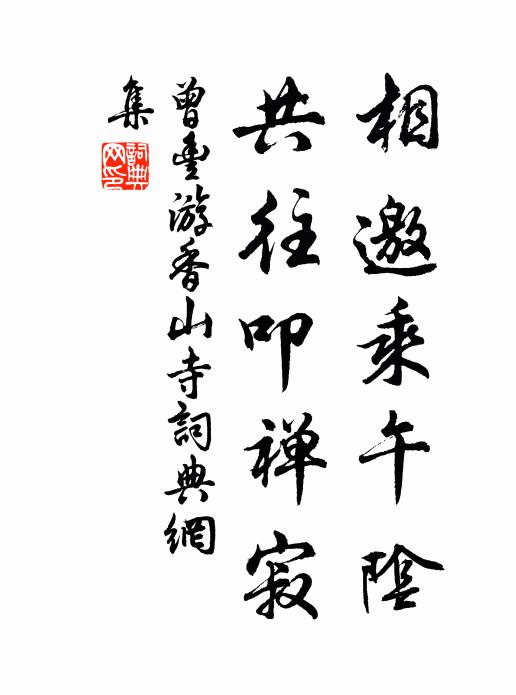 相邀乘午陰
共往叩禅寂
曾豐游香山寺詞典網
集
詞典網印